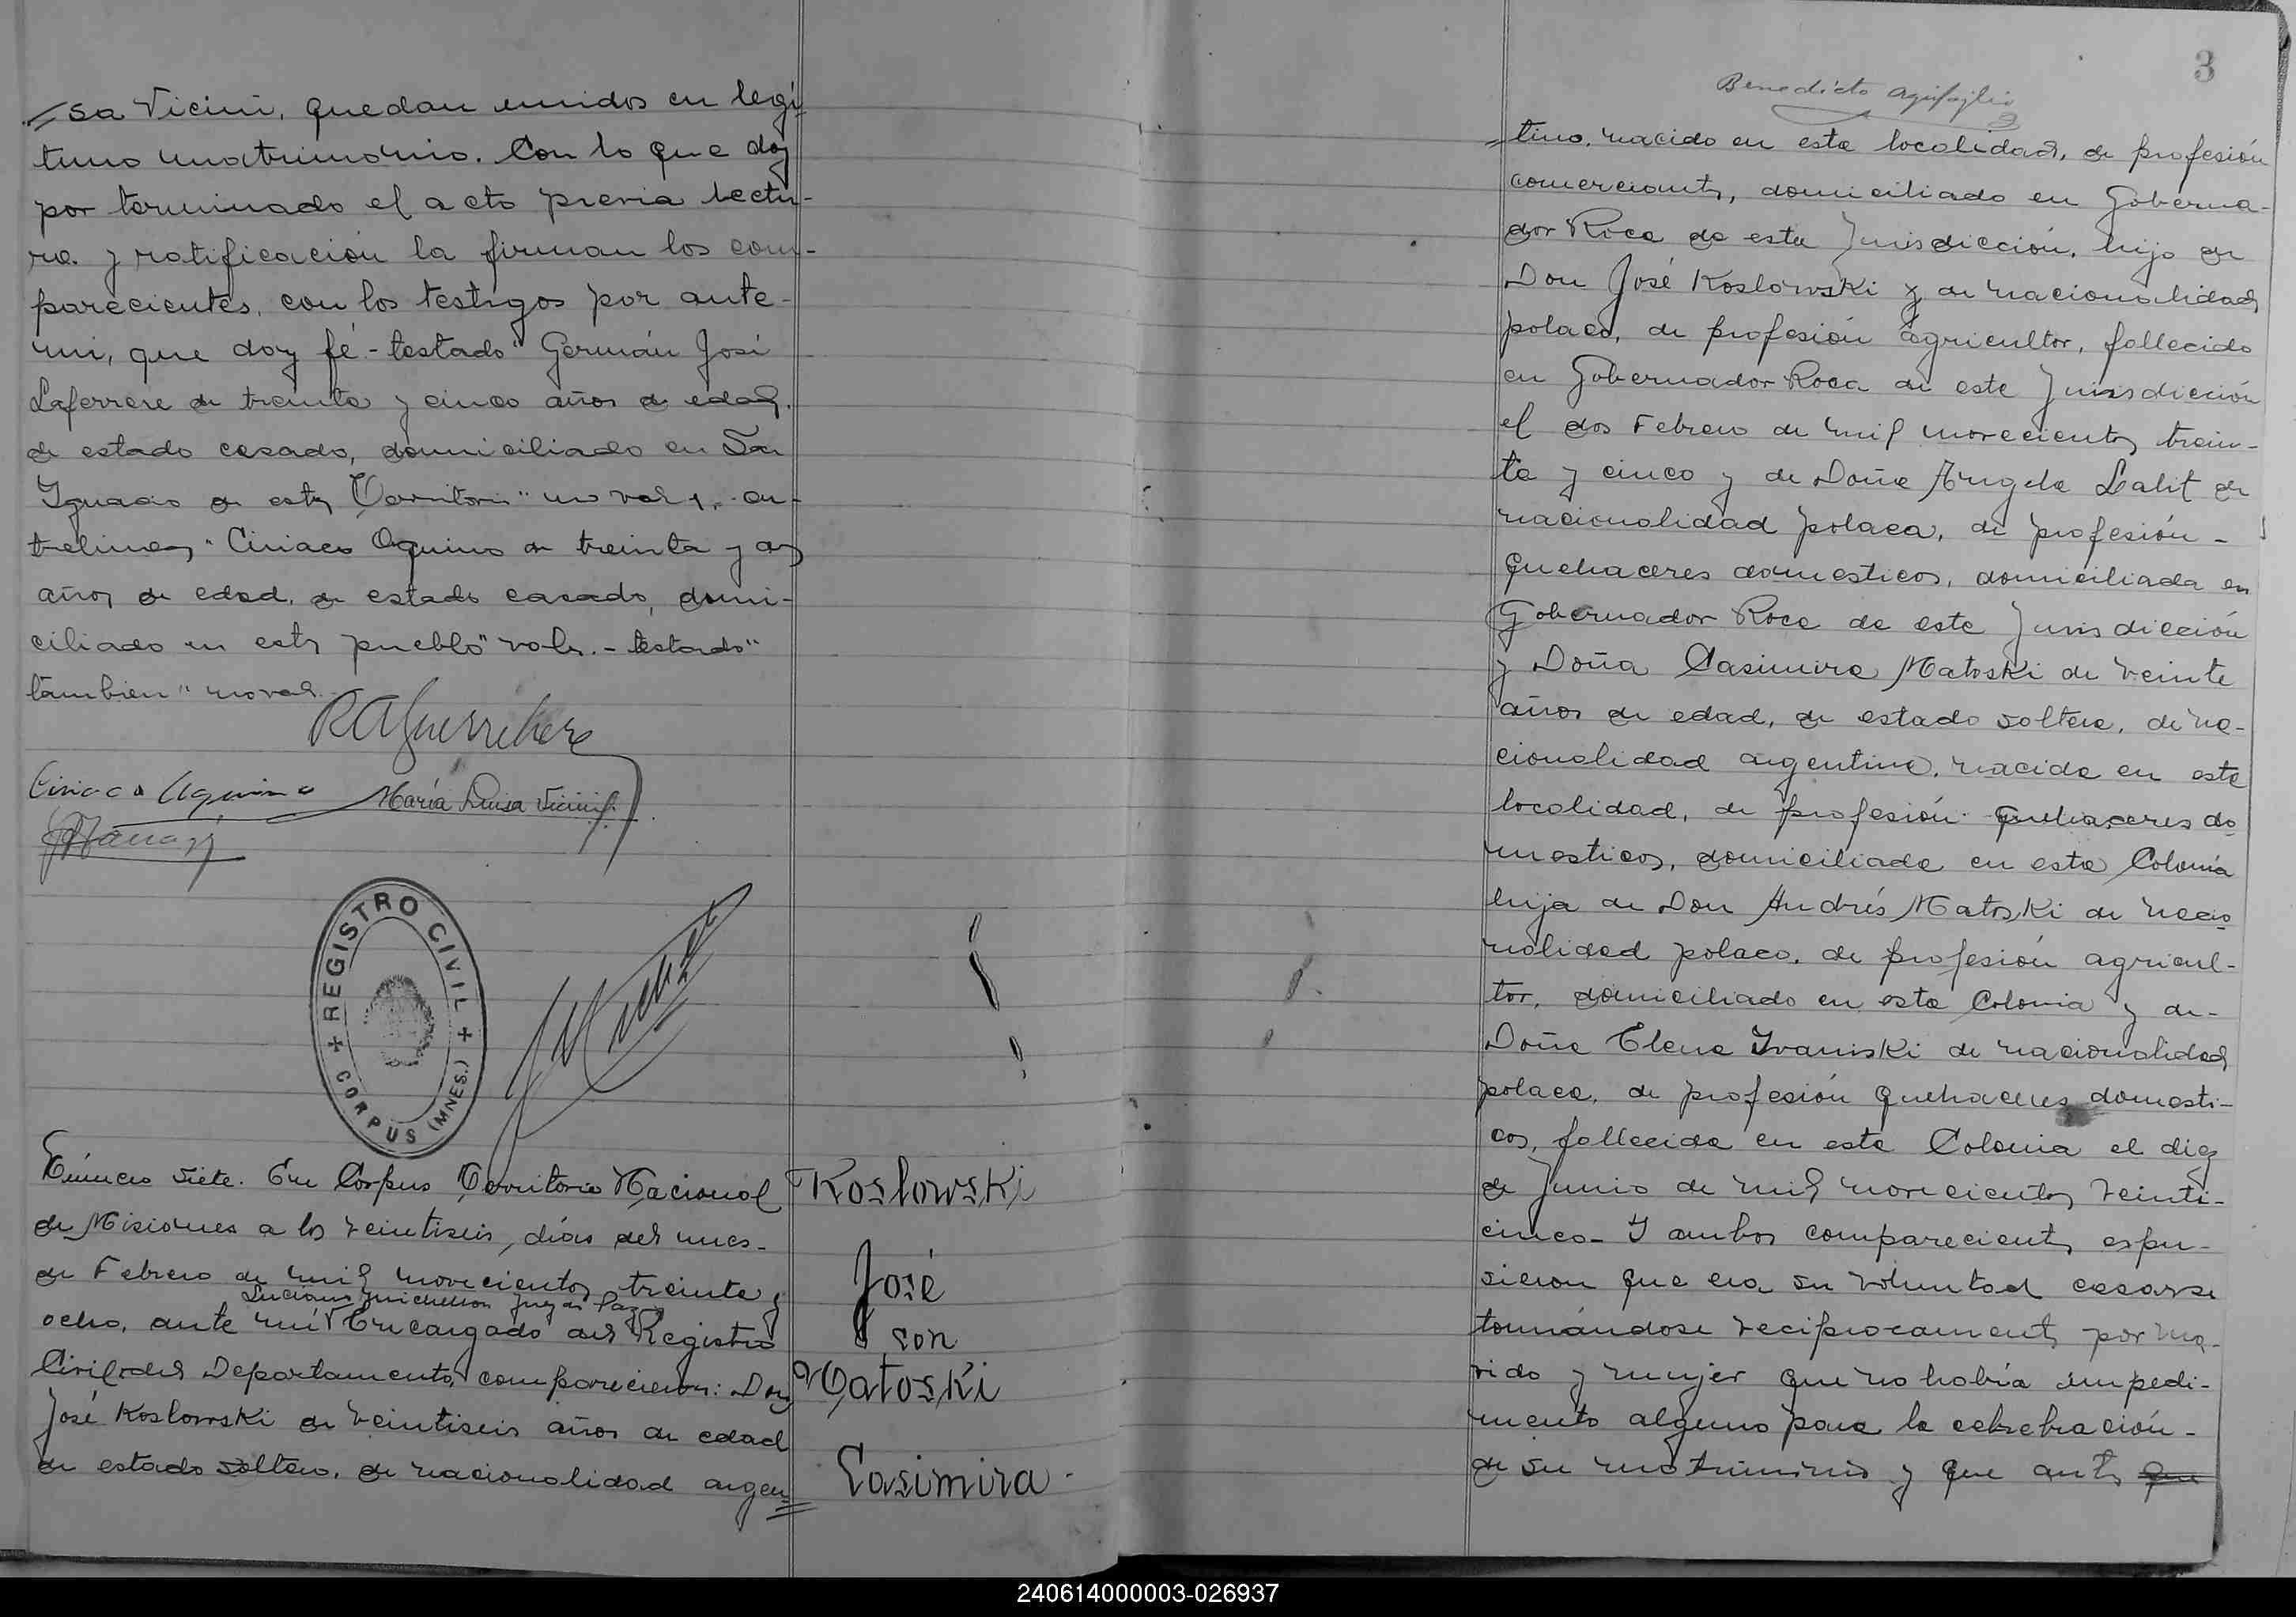 sa Vicini, quedan unidos en legi-
timo matrimonio. Con lo que doy
por terminado el acto previa lectu-
ra y ratificación la firman los com-
parecientes, con los testigos por ante-
mi, que doy fé.- testado "Germán José
Laferrere de treinta y cinco años de edad.
de estado casado, domiciliado en San
Ignacio de este Territorio" no vale,- en-
trelineas "Ciriaco Aquino de treinta y dos
años de edad, de estado casado, domi-
ciliado en este pueblo" vale.- testado"
tambien" no vale.-
Ciriaco Aquino
María Luisa Vicini
REGISTRO CIVIL
CORPUS (MNES.)
Número siete. En Corpus Territorio Nacional
de Misiones a los veintiseis, días del mes-
de Febrero de mil novecientos treinta y
Juez de Paz y
ocho, ante mí Encargado del Registro
Civil del Departamento, comparecieron: Don
José Koslowski de veintiseis años de edad
de estado soltero, de nacionalidad argen=
Koslowski
José
con
Matoski
Casimira.
3
Benedicto
=tino, nacido en esta localidad, de profesión
comerciante, domiciliado en Goberna-
dor Roca de esta Jurisdicción, hijo de
Don José Koslowski y de nacionalidad
polaco, de profesión agricultor, fallecido
en Gobernador Roca de este Jurisdicción
el dos Febrero de mil novecientos trein-
ta y cinco y de Doña Angela Lalit de
nacionalidad polaca, de profesión-
quehaceres domesticos, domiciliada en
Gobernador Roca de este Jurisdicción
y Doña Casimira Matoski de veinte
años de edad, de estado soltera, de na-
cionalidad argentina, nacida en esta
localidad, de profesión quehaceres do-
mesticos, domiciliada en esta Colonia
hija de Don Andrés Matoski de nacio-
nalidad polaco, de profesión agricul-
tor, domiciliado en esta Colonia y de-
Doña Elena Ivaniski de nacionalidad
polaca, de profesión quehaceres domesti-
cos, fallecida en esta Colonia el diez
de Junio de mil novecientos veinti-
cinco- Y ambos comparecientes espu-
sieron que era su voluntad casarse
tomándose reciprocamente por ma-
rido y mujer que no había impedi-
mento alguno para la celebración-
de su matrimonio y que ante que
240614000003-026937